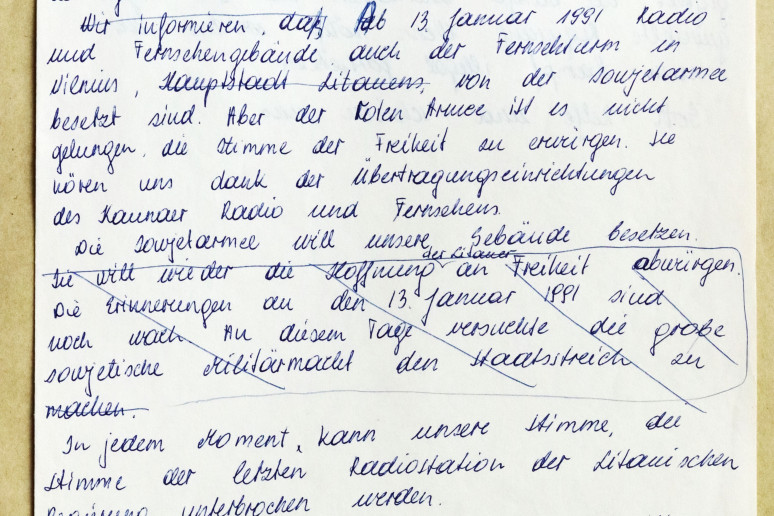 Wir informieren, daß ab 13 Januar 1991 Radio
und Fernsehengebäude, auch der Fernsehturm in
Vilnius, Hauptstadt Litauens, von der Sowjetarmee
besetzt sind. Aber der Roten Armee ist es nicht
gelungen, die Stimme der Freiheit zu erwürgen. Sie
hören uns dank der Übertragungseinrichtungen
des Kaunaer Radio und Fernsehens.
Die Sowjetarmee will unsere Gebäude besetzen.
der Litauer
Sie will wieder die Hoffnung an Freiheit abwürgen.
Die Erinnerungen an den 13. Januar 1991 sind
noch wach. An diesem Tage versuchte die große
sowjetische Militärmacht den Staatsstreich zu
machen.
In jedem Moment, kann unsere Stimme, die
Stimme der letzten Radiostation der Litauischen
Regierung unterbrochen werden.